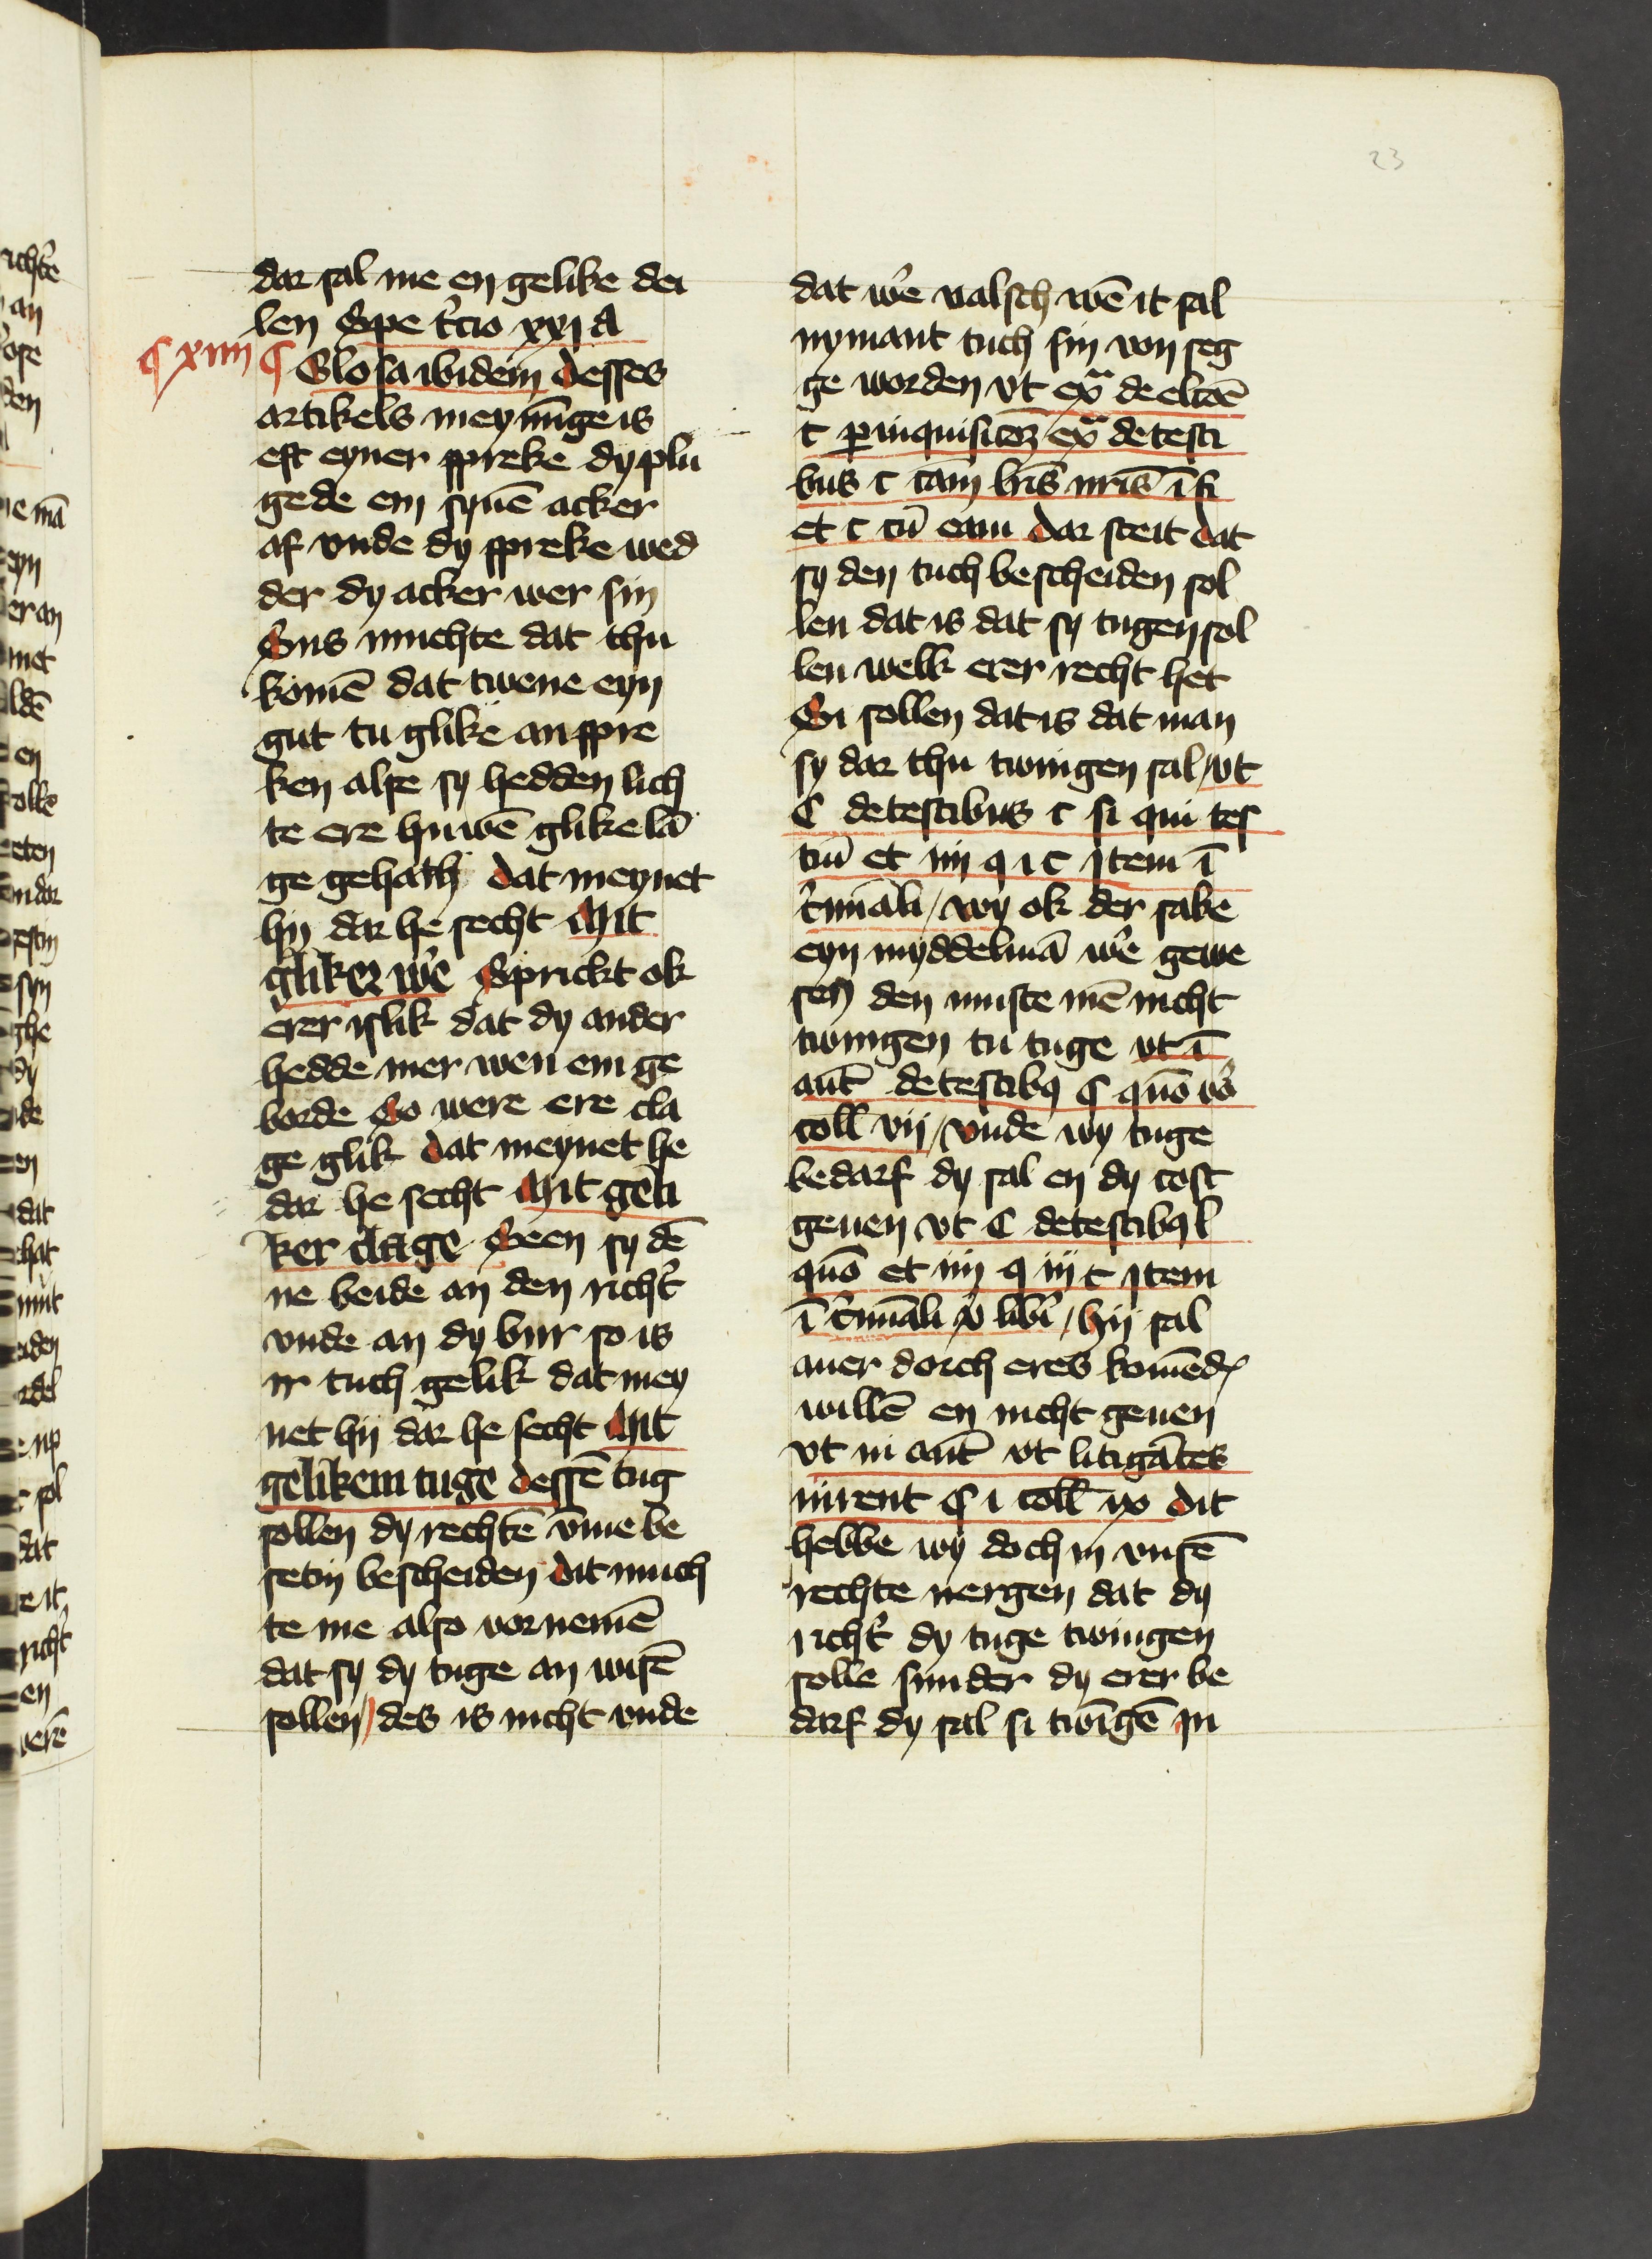 23
dar sal me en gelike dei
len Spe t͛cio xxi A
¶ xiiii ¶ Glosa ibidem desses
artikels meynīge is
eft eyner spreke dy plu
gede em synē acker
af vnde dy spreke wed
der dy acker wer sin
Sus muchte dat thu
komē dat twene eyn
gut tu glike anspre
ken alse sy hedden lich
te ere huwē glike lā
ge gehath dat meynet
hy dar he secht Mit
gliker we͛ Sprickt ok
erer islik dat dy ander
hedde mer wen em ge
borde So were ere cla
ge glik dat meynet he
dar he secht Mit geli
ker clage Geen sy dē
ne beide an den richt͛
vnde an dy bur so is
ir tuch gelik dat mey
net hy dar he secht Mit
gelikem tuge dessē tug
sollen dy rechtē vme be
setin bescheiden dit much
te me also vornemē
dat sy dy tuge an wisē
sollen / des is nicht vnde
dat we͛ valsch wē it sal
nymant tuch sin von seg
ge worden vt exͣ de elcōē
c ꝑ inquisicoꝫ exͣ de testi
bus c tam lr̄is nr̄is ī fi
et c cū eam dar steit dat
sy den tuch bescheiden sol
len dat is dat sy tugen sol
len welk erer recht het
Si sollen dat is dat man
sy dar thu twingen sal / vt
C de testibus c si qui tes
tiū et iiii q i c Item ī
c͛minali / wy ok der sake
eyn myddelmā we͛ gewe
sen den muste mē nicht
twingen tu tuge vt ī
aut̄ de testibꝯ § quō v͛o
coll vii / vnde wy tuge
bedarf dy sal en dy cost
geuen vt C de testibꝯ l
quō et iiii q iii c Item
ī c͛minali v͛ libi / hy sal
auer dorch eres komēdes
willē en nicht geuen
vt in aut̄ vt litigātes
iurent § i coll ix dit
hebbe wy doch in vnsē
rechte nergen dat dy
richt͛ dy tuge twingen
solle sunder dy erer be
darf dy sal si twīgē In